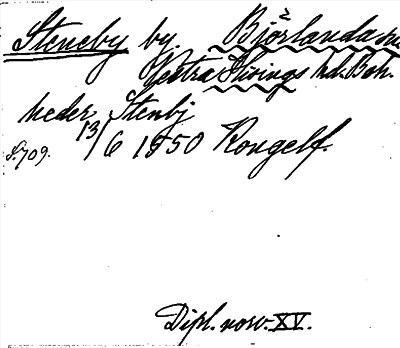 Steneby by. Björlanda sn.
Västra Hisings hd. Boh.
heder Stenbj
13/6 1550 Kongelf.
S. 709.
Dipl. norv. XV.